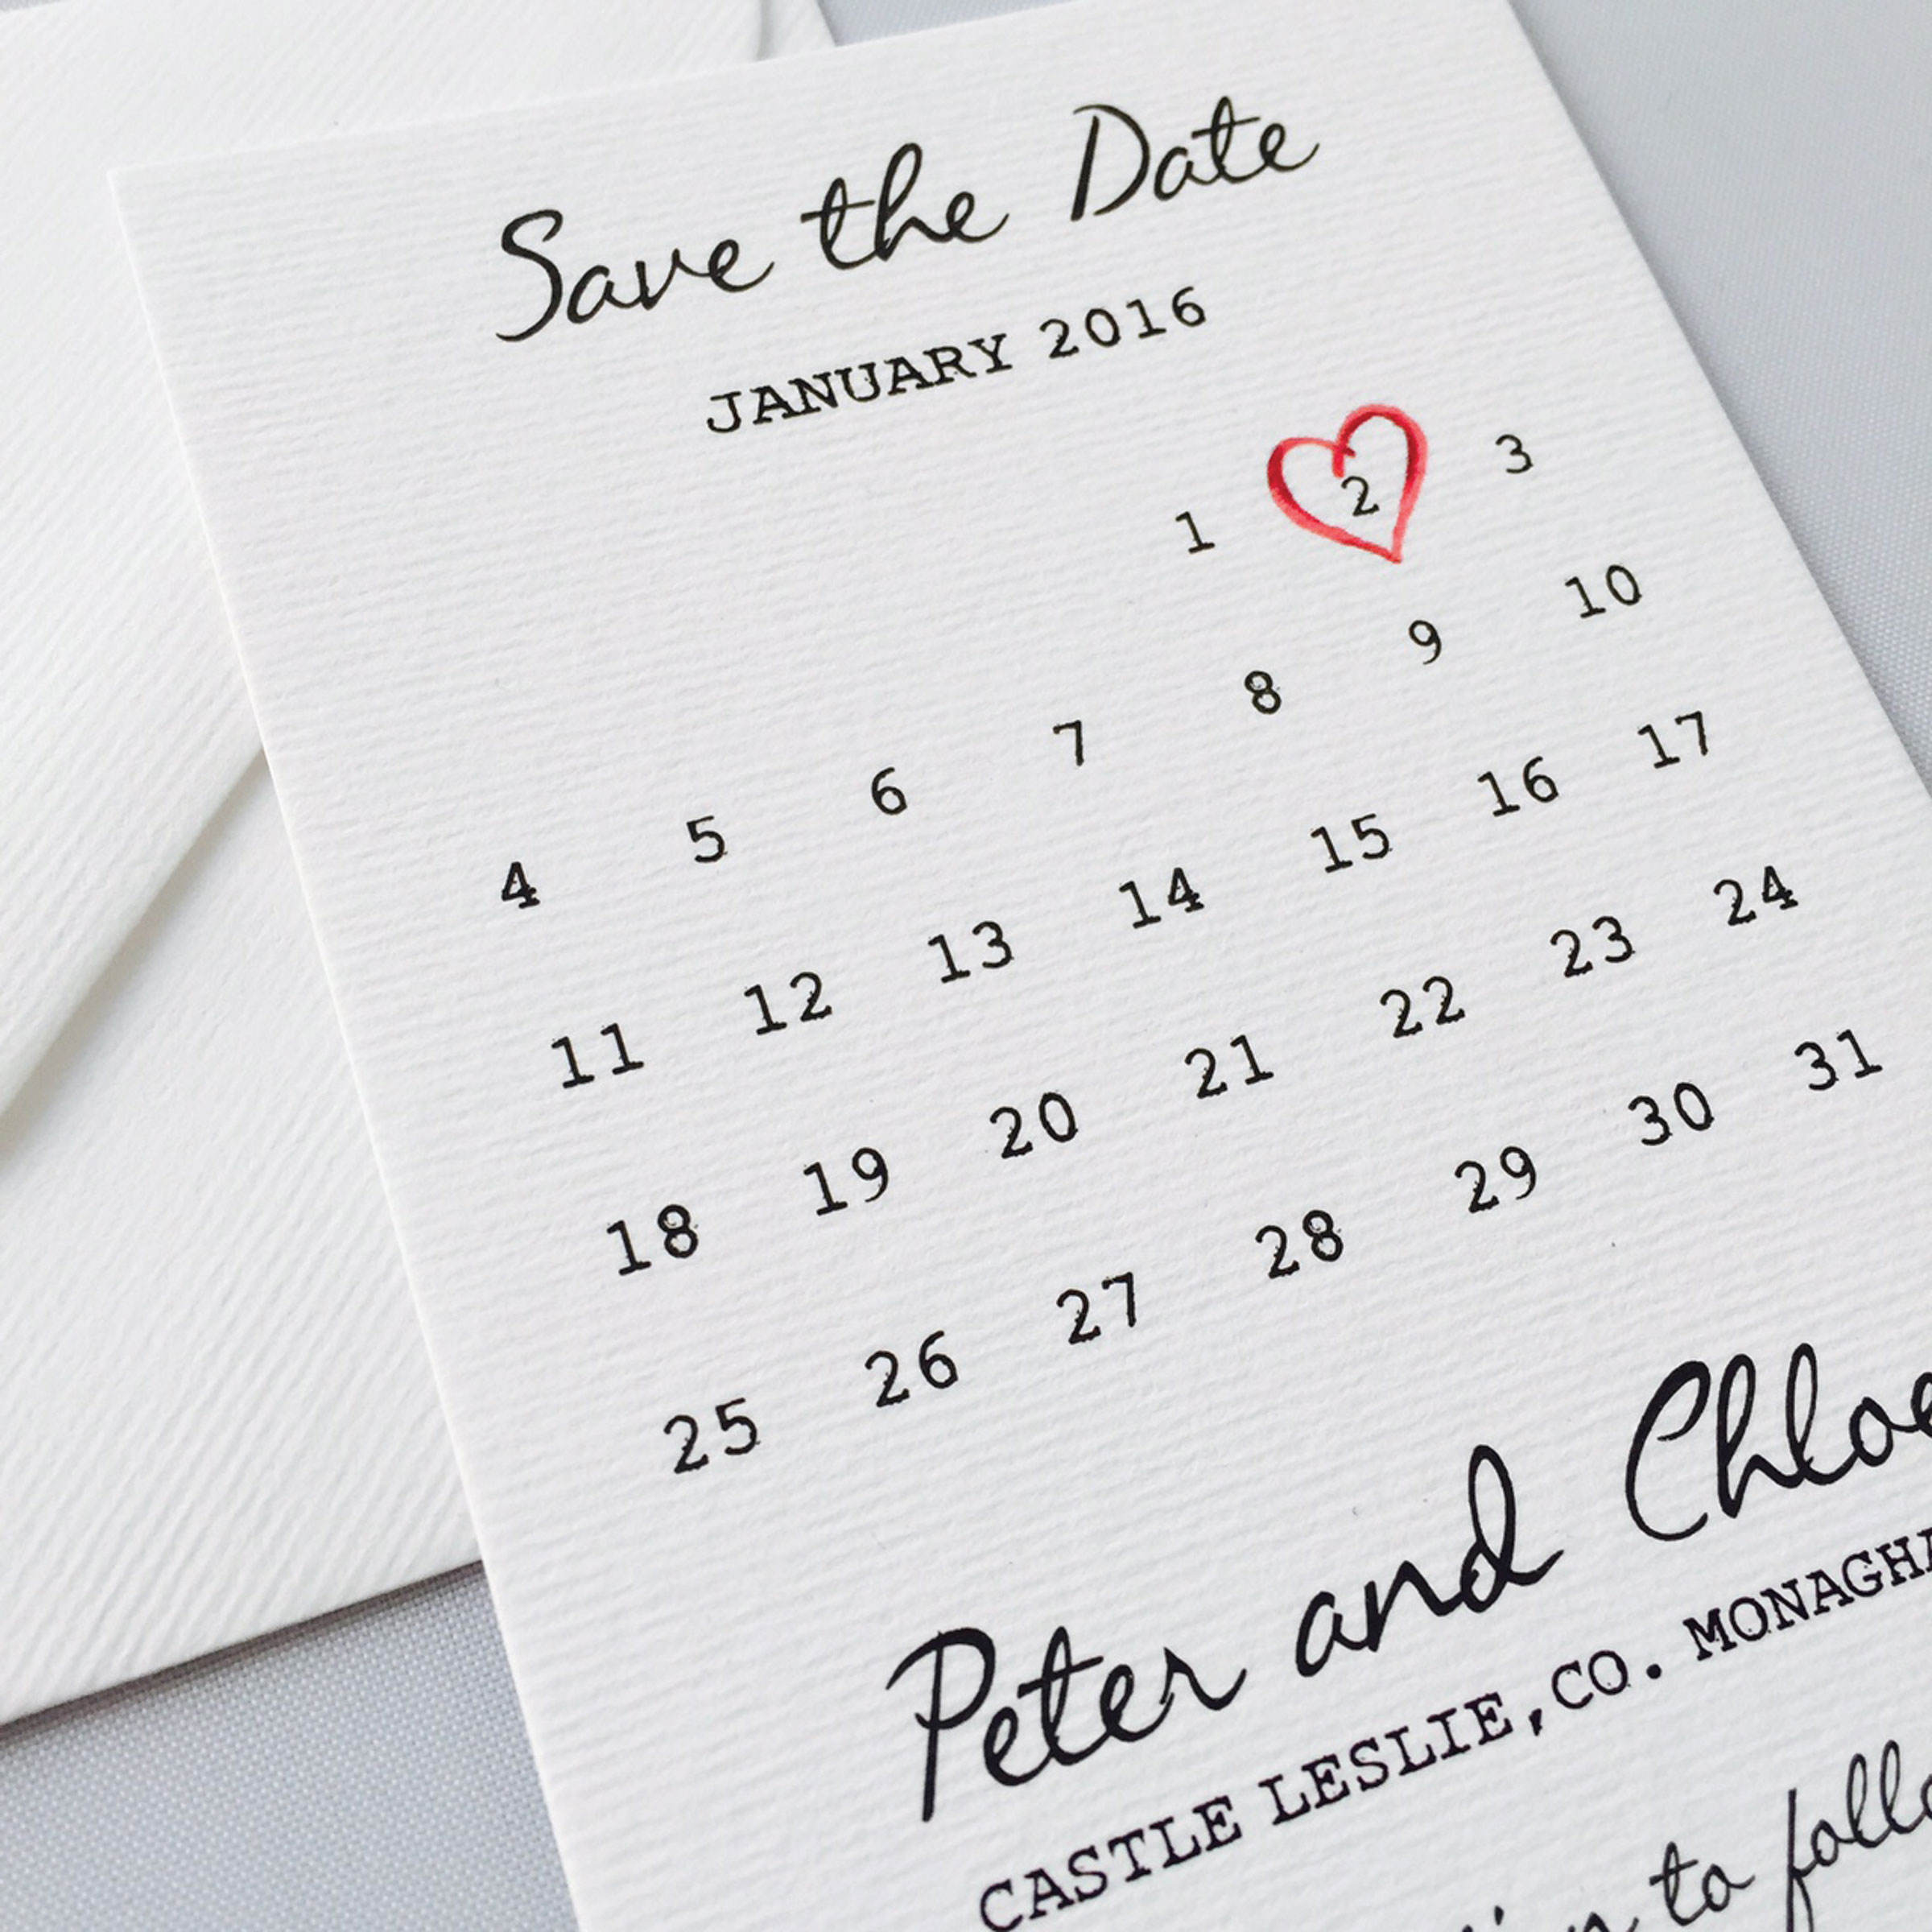 Save the Date
JANUARY 2016
1 2 3
4 5 6 7 8 9 10
11 12 13 14 15 16 17
18 19 20 21 22 23 24
25 26 27 28 29 30 31
Peter and Chloe
CASTLE LESLIE,CO. MONAGHA
to follo